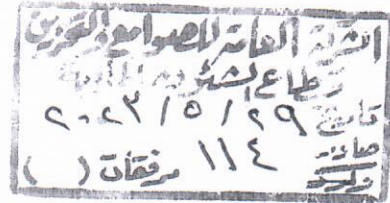 الشركة العامة للصوامع والتخزين
قطاع الشئون المالية
تاريخ ٢٠٢٣/٥/٢٩
صادر ١١٤ مرفقات (   )
وارد